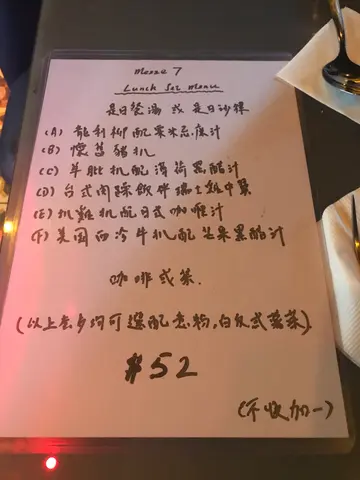 Mezze 7
Lunch Set Menu
是日餐湯 或 是日沙律
(A) 龍利柳配粟米忌廉汁
(B) 懷舊豬扒
(C) 羊肶扒配薄荷黑醋汁
(D) 台式肉碎飯伴瑞士雞中翼
(E) 扒雞扒配日式咖喱汁
(F) 美國西冷牛扒配芒果黑醋汁
咖啡或茶.
(以上各均可選配意粉,白飯或蔬菜)
$52
(不收加一)